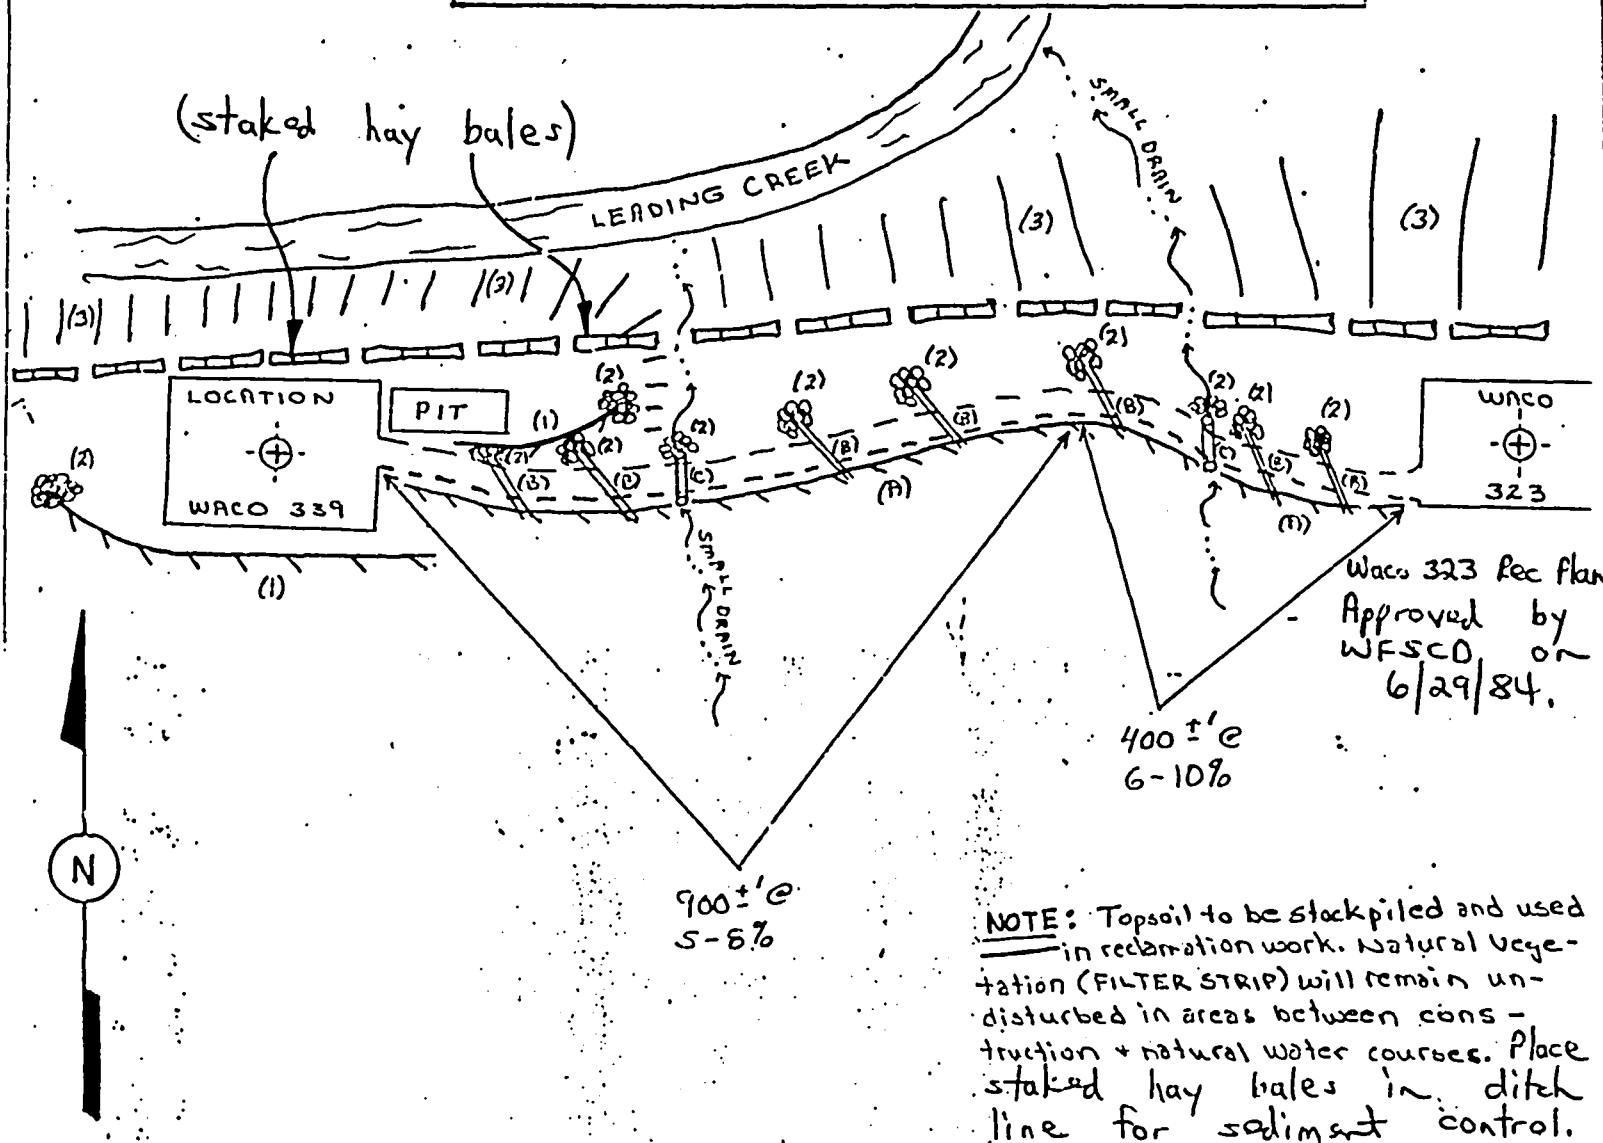 (staked hay bales)
SMALL DRAIN
LEADING CREEK
(3)
(3)
(3)
(3)
LOCATION
WACO 339
PIT
(1)
(2)
(2)
(2)
(2)
(2)
(2)
(2)
(2)
(2)
(2)
(2)
(B)
(B)
(C)
(B)
(B)
(B)
(B)
(B)
(A)
WACO
323
(1)
SMALL DRAIN
Waco 323 Rec Plan
Approved by
WFSCD on
6/29/84.
400 ±' @
6-10%
900 ±' @
5-8%
N
NOTE: Topsoil to be stockpiled and used
in reclamation work. Natural vege-
tation (FILTER STRIP) will remain un-
disturbed in areas between cons-
truction + natural water courses. Place
staked hay bales in ditch
line for sediment control.